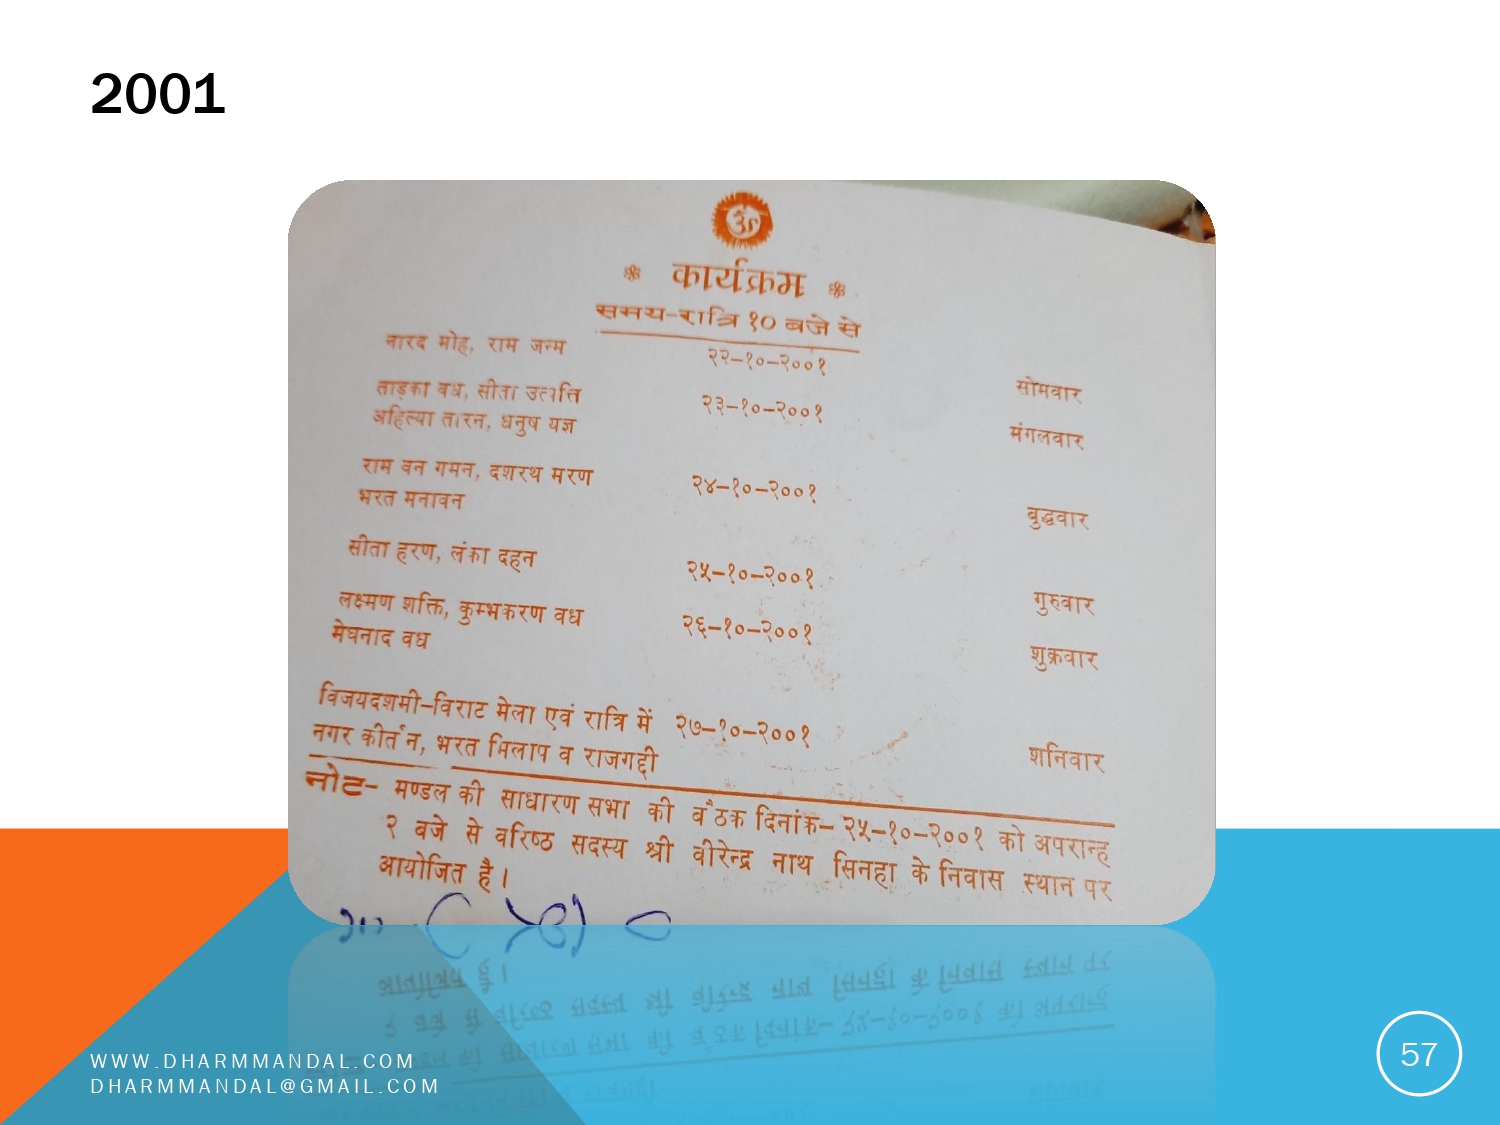 2001
ॐ
कार्यक्रम
समय-रात्रि १० बजे से
नारद मोह, राम जन्म २२-१०-२००१ सोमवार
ताड़का वध, सीता उत्पत्ति २३-१०-२००१ मंगलवार
अहिल्या तारन, धनुष यज्ञ
राम वन गमन, दशरथ मरण २४-१०-२००१ बुद्धवार
भरत मनावन
सीता हरण, लंका दहन २५-१०-२००१ गुरुवार
लक्ष्मण शक्ति, कुम्भकरण वध २६-१०-२००१ शुक्रवार
मेघनाद वध
विजयदशमी-विराट मेला एवं रात्रि में २७-१०-२००१ शनिवार
नगर कीर्तन, भरत मिलाप व राजगद्दी
नोट- मण्डल की साधारण सभा की बैठक दिनांक- २५-१०-२००१ को अपरान्ह
२ बजे से वरिष्ठ सदस्य श्री वीरेन्द्र नाथ सिनहा के निवास स्थान पर
आयोजित है।
WWW.DHARMMANDAL.COM
DHARMMANDAL@GMAIL.COM
57